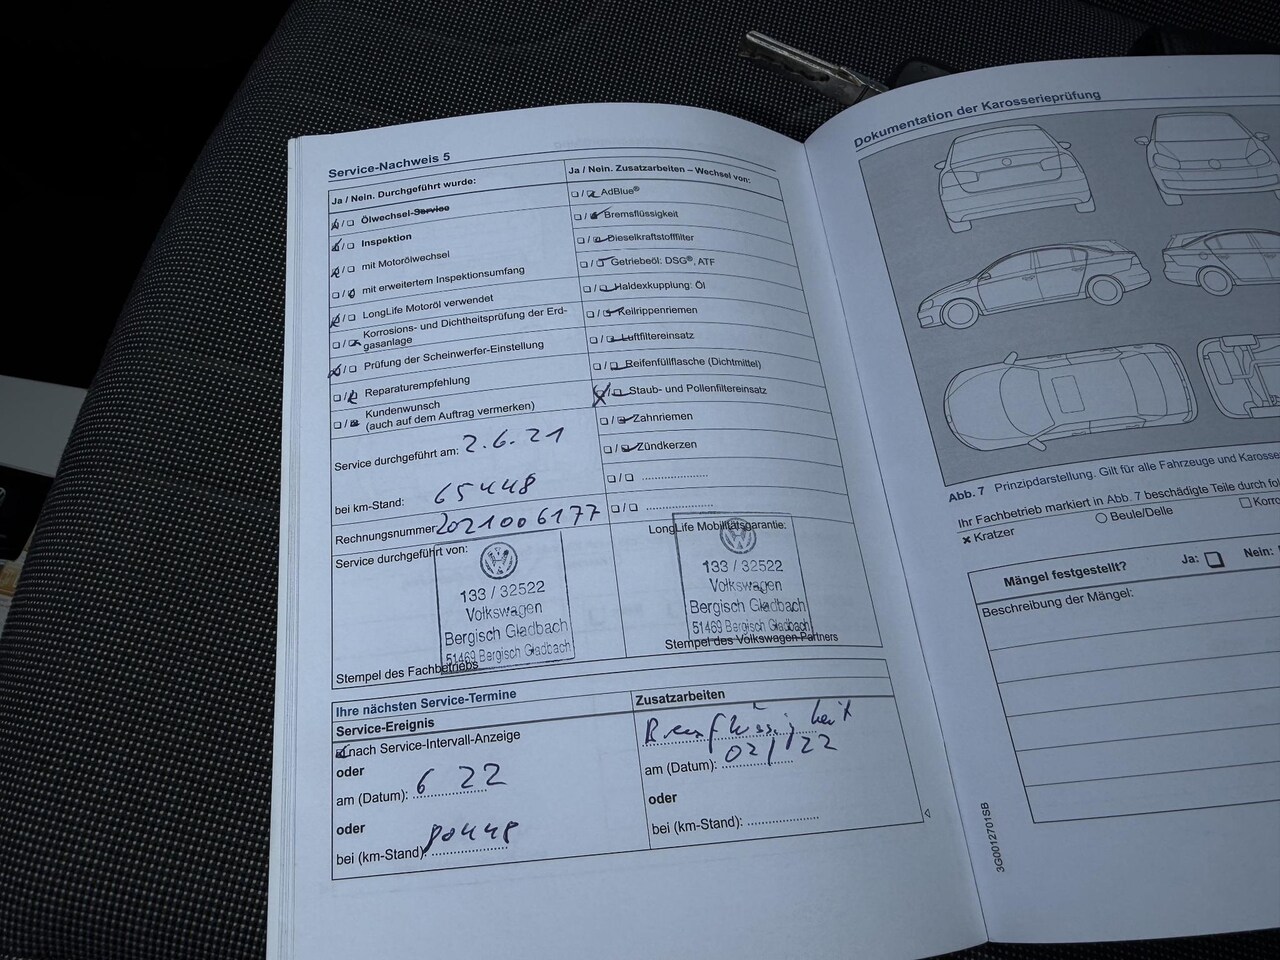 Service-Nachweis 5
Ja / Nein. Durchgeführt wurde:
Ölwechsel-Service
Inspektion
mit Motorölwechsel
mit erweitertem Inspektionsumfang
LongLife Motoröl verwendet
Korrosions- und Dichtheitsprüfung der Erd-
gasanlage
Prüfung der Scheinwerfer-Einstellung
Reparaturempfehlung
Kundenwunsch
(auch auf dem Auftrag vermerken)
Service durchgeführt am: 2.6.21
bei km-Stand: 65448
Rechnungsnummer 2021006177
Service durchgeführt von:
133 / 32522
Volkswagen
Bergisch Gladbach
51469 Bergisch Gladbach
Stempel des Fachbetriebs
Ja / Nein. Zusatzarbeiten – Wechsel von:
AdBlue®
Bremsflüssigkeit
Dieselkraftstofffilter
Getriebeöl: DSG®, ATF
Haldexkupplung: Öl
Keilrippenriemen
Luftfiltereinsatz
Reifenfüllflasche (Dichtmittel)
Staub- und Pollenfiltereinsatz
Zahnriemen
Zündkerzen
LongLife Mobilitätsgarantie:
133 / 32522
Volkswagen
Bergisch Gladbach
51469 Bergisch Gladbach
Stempel des Volkswagen Partners
Ihre nächsten Service-Termine
Service-Ereignis
nach Service-Intervall-Anzeige
oder
am (Datum): 6 22
oder
bei (km-Stand): 80448
Zusatzarbeiten
Bremsflüssigkeit
am (Datum): 02/22
oder
bei (km-Stand):
Dokumentation der Karosserieprüfung
Abb. 7 Prinzipdarstellung. Gilt für alle Fahrzeuge und Karosse
Ihr Fachbetrieb markiert in Abb. 7 beschädigte Teile durch fol
Kratzer
Beule/Delle
Korro
Mängel festgestellt? Ja: Nein:
Beschreibung der Mängel:
3G0012701SB